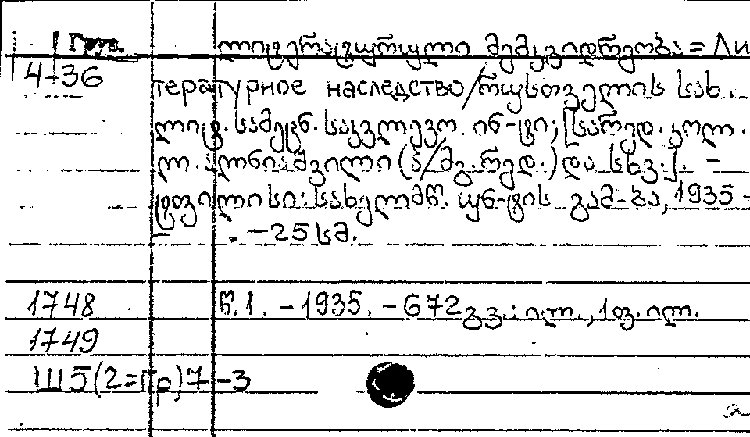 Груз.
4-36
ლიტერატურული მემკვიდრეობა = Ли
тературное наследство/რუსთველის სახ.
ლიტ. სამეცნ. საკვლევო ინ-ტი; [სარედ. კოლ.
ლ. ალნიაშვილი (პ/მგ. რედ.) და სხვ.]. –
ტფილისი: სახელმწ. უნ-ტის გამ-ბა, 1935 -
– . – 25 სმ.
1748 წ.1. – 1935. – 672 გვ.: ილ., 1 ფ. ილ.
1749
Ш5(2=Гр)7-3